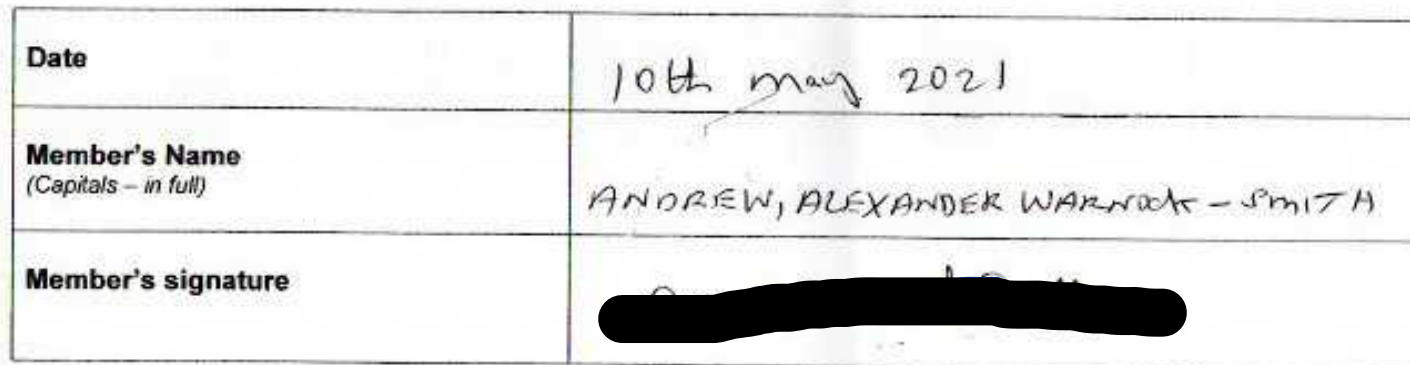 Date
10th may 2021
Member's Name
(Capitals – in full)
ANDREW, ALEXANDER WARNOCK - SMITH
Member's signature